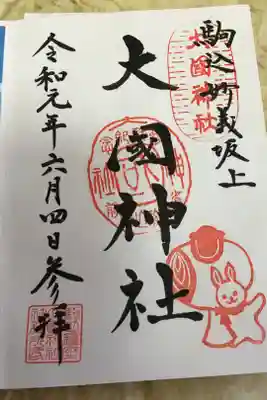 駒込妙義坂上
大國神社
大國神社
令和元年六月四日参拝